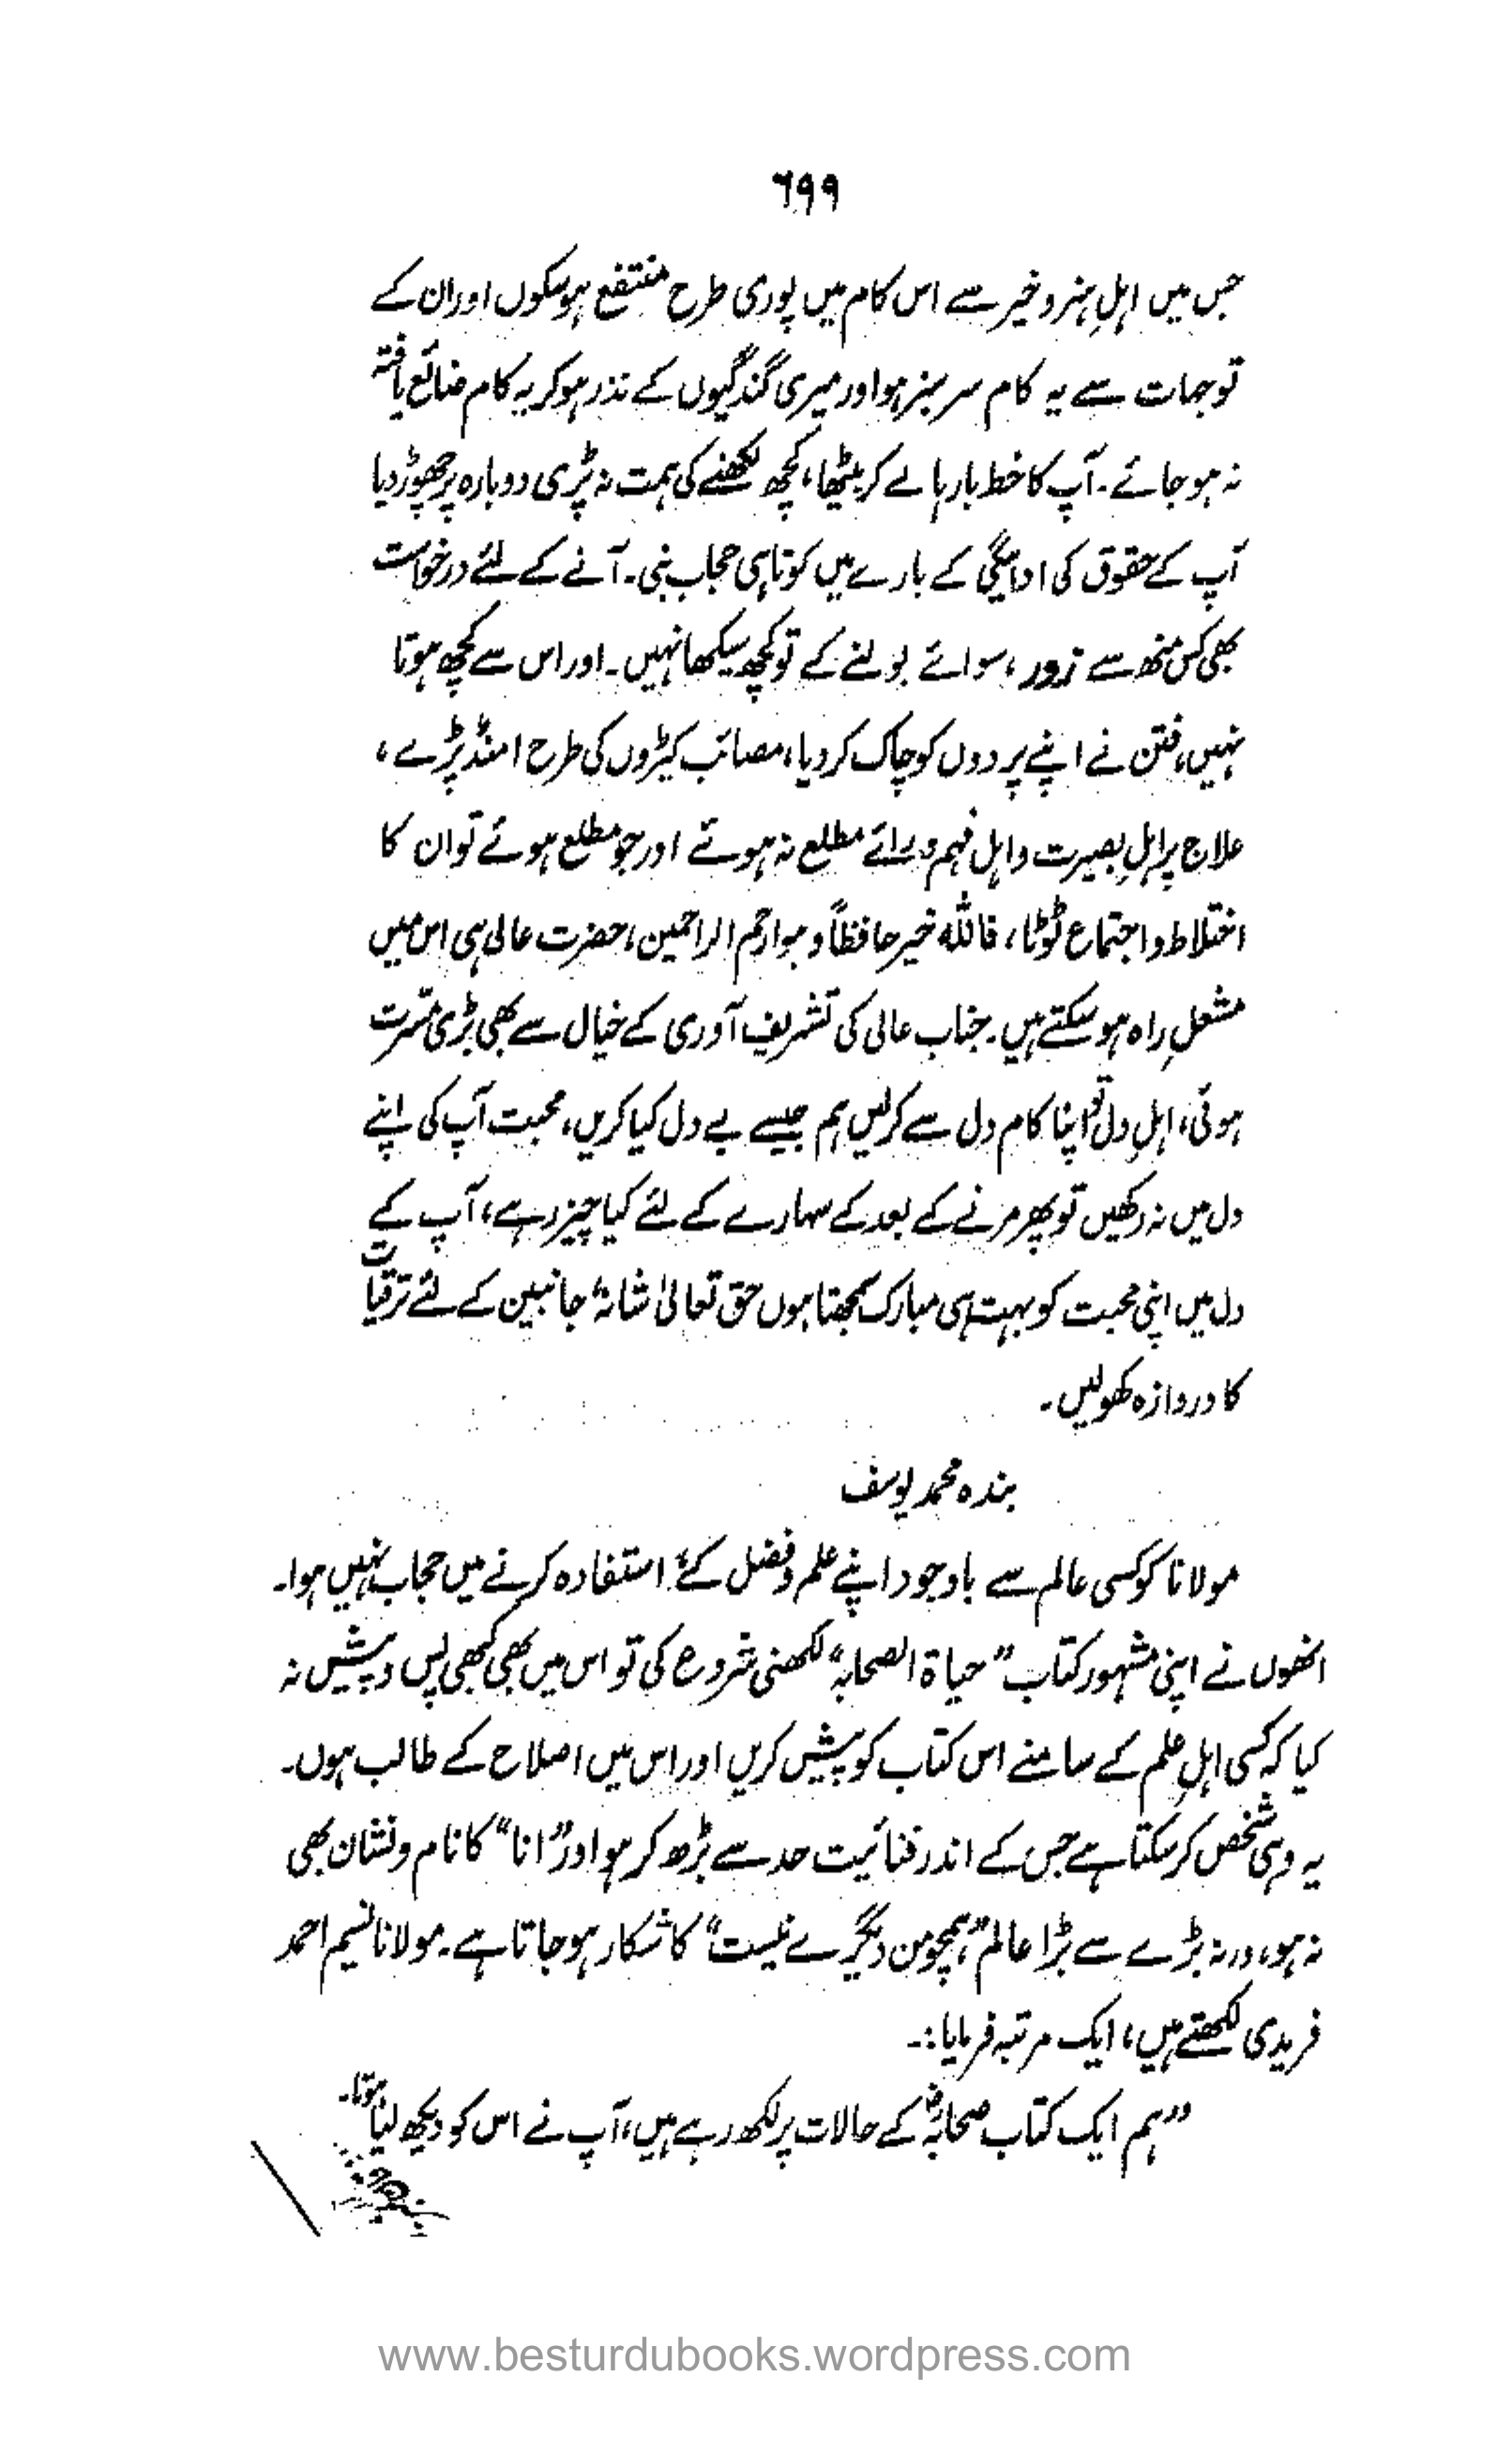 ۶۹۹
جس میں اہلِ ہنر و خیر سے اس کام میں پوری طرح منتفع ہوسکوں اور ان کے
توجہات سے یہ کام سرسبز ہو اور میری گندگیوں کے نذر ہوکر یہ کام ضائع یافتہ
نہ ہو جائے۔ آپ کا خط بارہا لے کر بیٹھا، کچھ لکھنے کی ہمت نہ پڑی دوبارہ پر چھوڑ دیا
آپ کے حقوق کی ادائیگی کے بارے میں کوتاہی حجاب بنی۔ آنے کے لئے درخواست
بھی کس منھ سے زور، سوائے بولنے کے تو کچھ سیکھا نہیں۔ اور اس سے کچھ ہوتا
نہیں، فتن نے اپنے پردوں کو چاک کر دیا، مصائب کیڑوں کی طرح امنڈ پڑے،
علاج پر اہلِ بصیرت و اہل فہم و رائے مطلع نہ ہوئے اور جو مطلع ہوئے تو ان کا
اختلاط و اجتماع ٹوٹا، فاللہ خیر حافظاً و ہو ارحم الراحمین، حضرت عالی ہی اس میں
مشعلِ راہ ہوسکتے ہیں۔ جناب عالی کی تشریف آوری کے خیال سے بھی بڑی مسّرت
ہوئی، اہلِ دل تو اپنا کام دل سے کرلیں ہم جیسے بے دل کیا کریں، محبت آپ کی اپنے
دل میں نہ رکھیں تو پھر مرنے کے بعد کے سہارے کے لئے کیا چیز رہے، آپ کے
دل میں اپنی محبت کو بہت ہی مبارک سمجھتا ہوں حق تعالیٰ شانہٗ جانبین کے لئے ترقیات
کا دروازہ کھولیں۔
بندہ محمد یوسف
مولانا کو کسی عالم سے باوجود اپنے علم و فضل کے استفادہ کرنے میں حجاب نہیں ہوا۔
انھوں نے اپنی مشہور کتاب "حیاۃ الصحابہ" لکھنی شروع کی تو اس میں بھی کبھی پس و پیش نہ
کیا کہ کسی اہلِ علم کے سامنے اس کتاب کو پیش کریں اور اس میں اصلاح کے طالب ہوں۔
یہ وہی شخص کرسکتا ہے جس کے اندر فنائیت حد سے بڑھ کر ہو اور "انا" کا نام و نشان بھی
نہ ہو، ورنہ بڑے سے بڑا عالم "ہمچومن دیگرے نیست" کا شکار ہو جاتا ہے۔ مولانا نسیم احمد
فریدی لکھتے ہیں، ایک مرتبہ فرمایا:۔
"ہم ایک کتاب صحابہؓ کے حالات پر لکھ رہے ہیں، آپ نے اس کو دیکھ لیا ہوتا۔
www.besturdubooks.wordpress.com